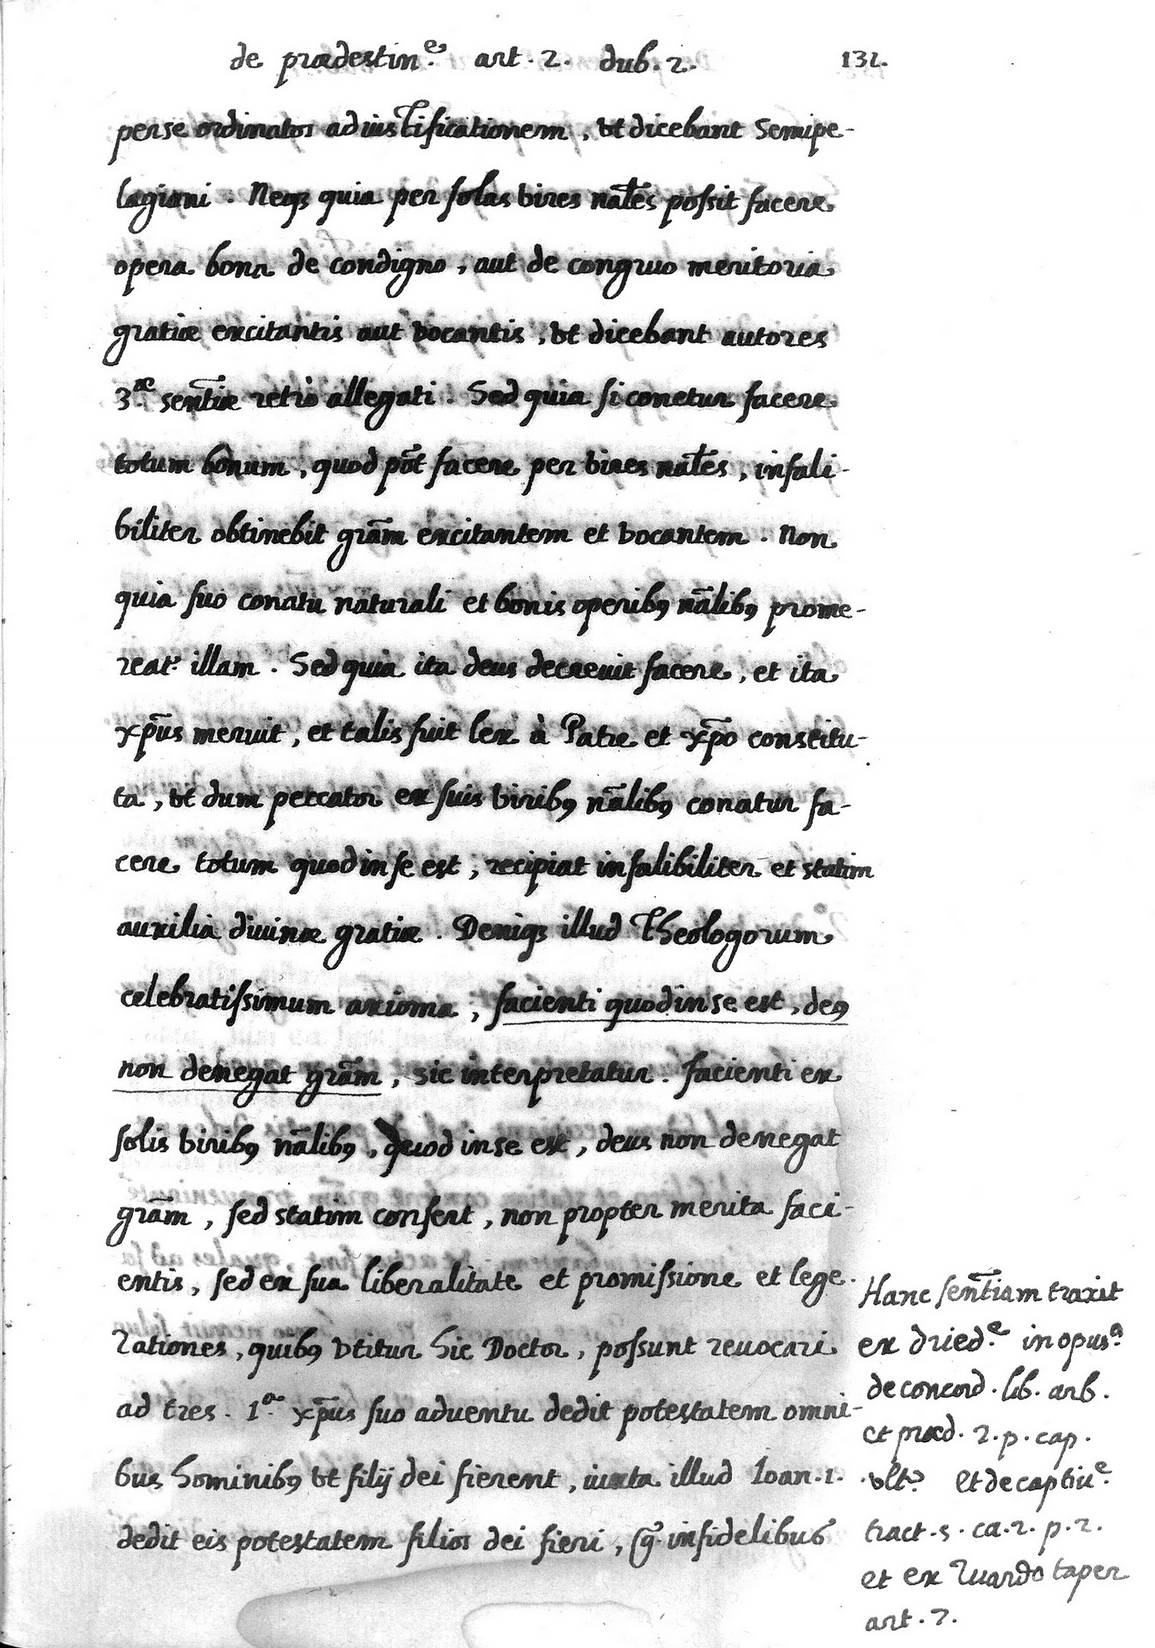 de prædestin.e art. 2. dub. 2. 132.
pense ordinator ad iustificationem, vt dicebant Semipe-
lagiani. Neqꝫ quia per solas vires nāłes possit facere
opera bona de condigno, aut de congruo meritoria
gratiæ excitantis aut vocantis, vt dicebant autores
3.æ sentiæ retrò allegati. Sed quia si conetur facere
totum bonum, quod põt facere per vires nāłes, infali-
biliter obtinebit grãm excitantem et vocantem. Non
quia suo conatu naturali et bonis operibꝰ nãlibꝰ prome-
reat.r illam. Sed quia ita deus decreuit facere, et ita
xp̃us meruit, et talis fuit lex à Patre et xp̃o constitu-
ta, vt dum peccator ex suis viribꝰ nãlibꝰ conatur fa-
cere totum quod in se est, recipiat infalibiliter et statim
auxilia diuinæ gratiæ. Deniqꝫ illud Theologorum
celebratissimum axioma, facienti quod in se est, deꝰ
non denegat grãm, sic interpretatur. facienti ex
solis viribꝰ nãlibꝰ, quod in se est, deus non denegat
grãm, sed statim confert, non propter merita faci-
entis, sed ex sua liberalitate et promissione et lege.
Rationes, quibꝰ vtitur hic Doctor, possunt reuocari
ad tres. 1.a xp̃us suo aduentu dedit potestatem omni-
bus hominibꝰ vt filij dei fierent, iuxta illud Ioan. 1.
dedit eis potestatem filios dei fieri, g̃ infidelibus
Hanc sentiam traxit
ex dried.e in opus.o
de concord. lib. arb.
et præd. 2. p. cap.
vlt.o et de captiu.e
tract. 5. ca. 2. p. 2.
et ex Ruardo taper
art. 7.